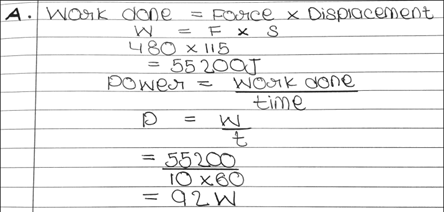 A. Work done = Force × Displacement
W = F × S
480 × 115
= 55200J
Power = Work done
time
P = W
t
= 55200
10 × 60
= 92 W